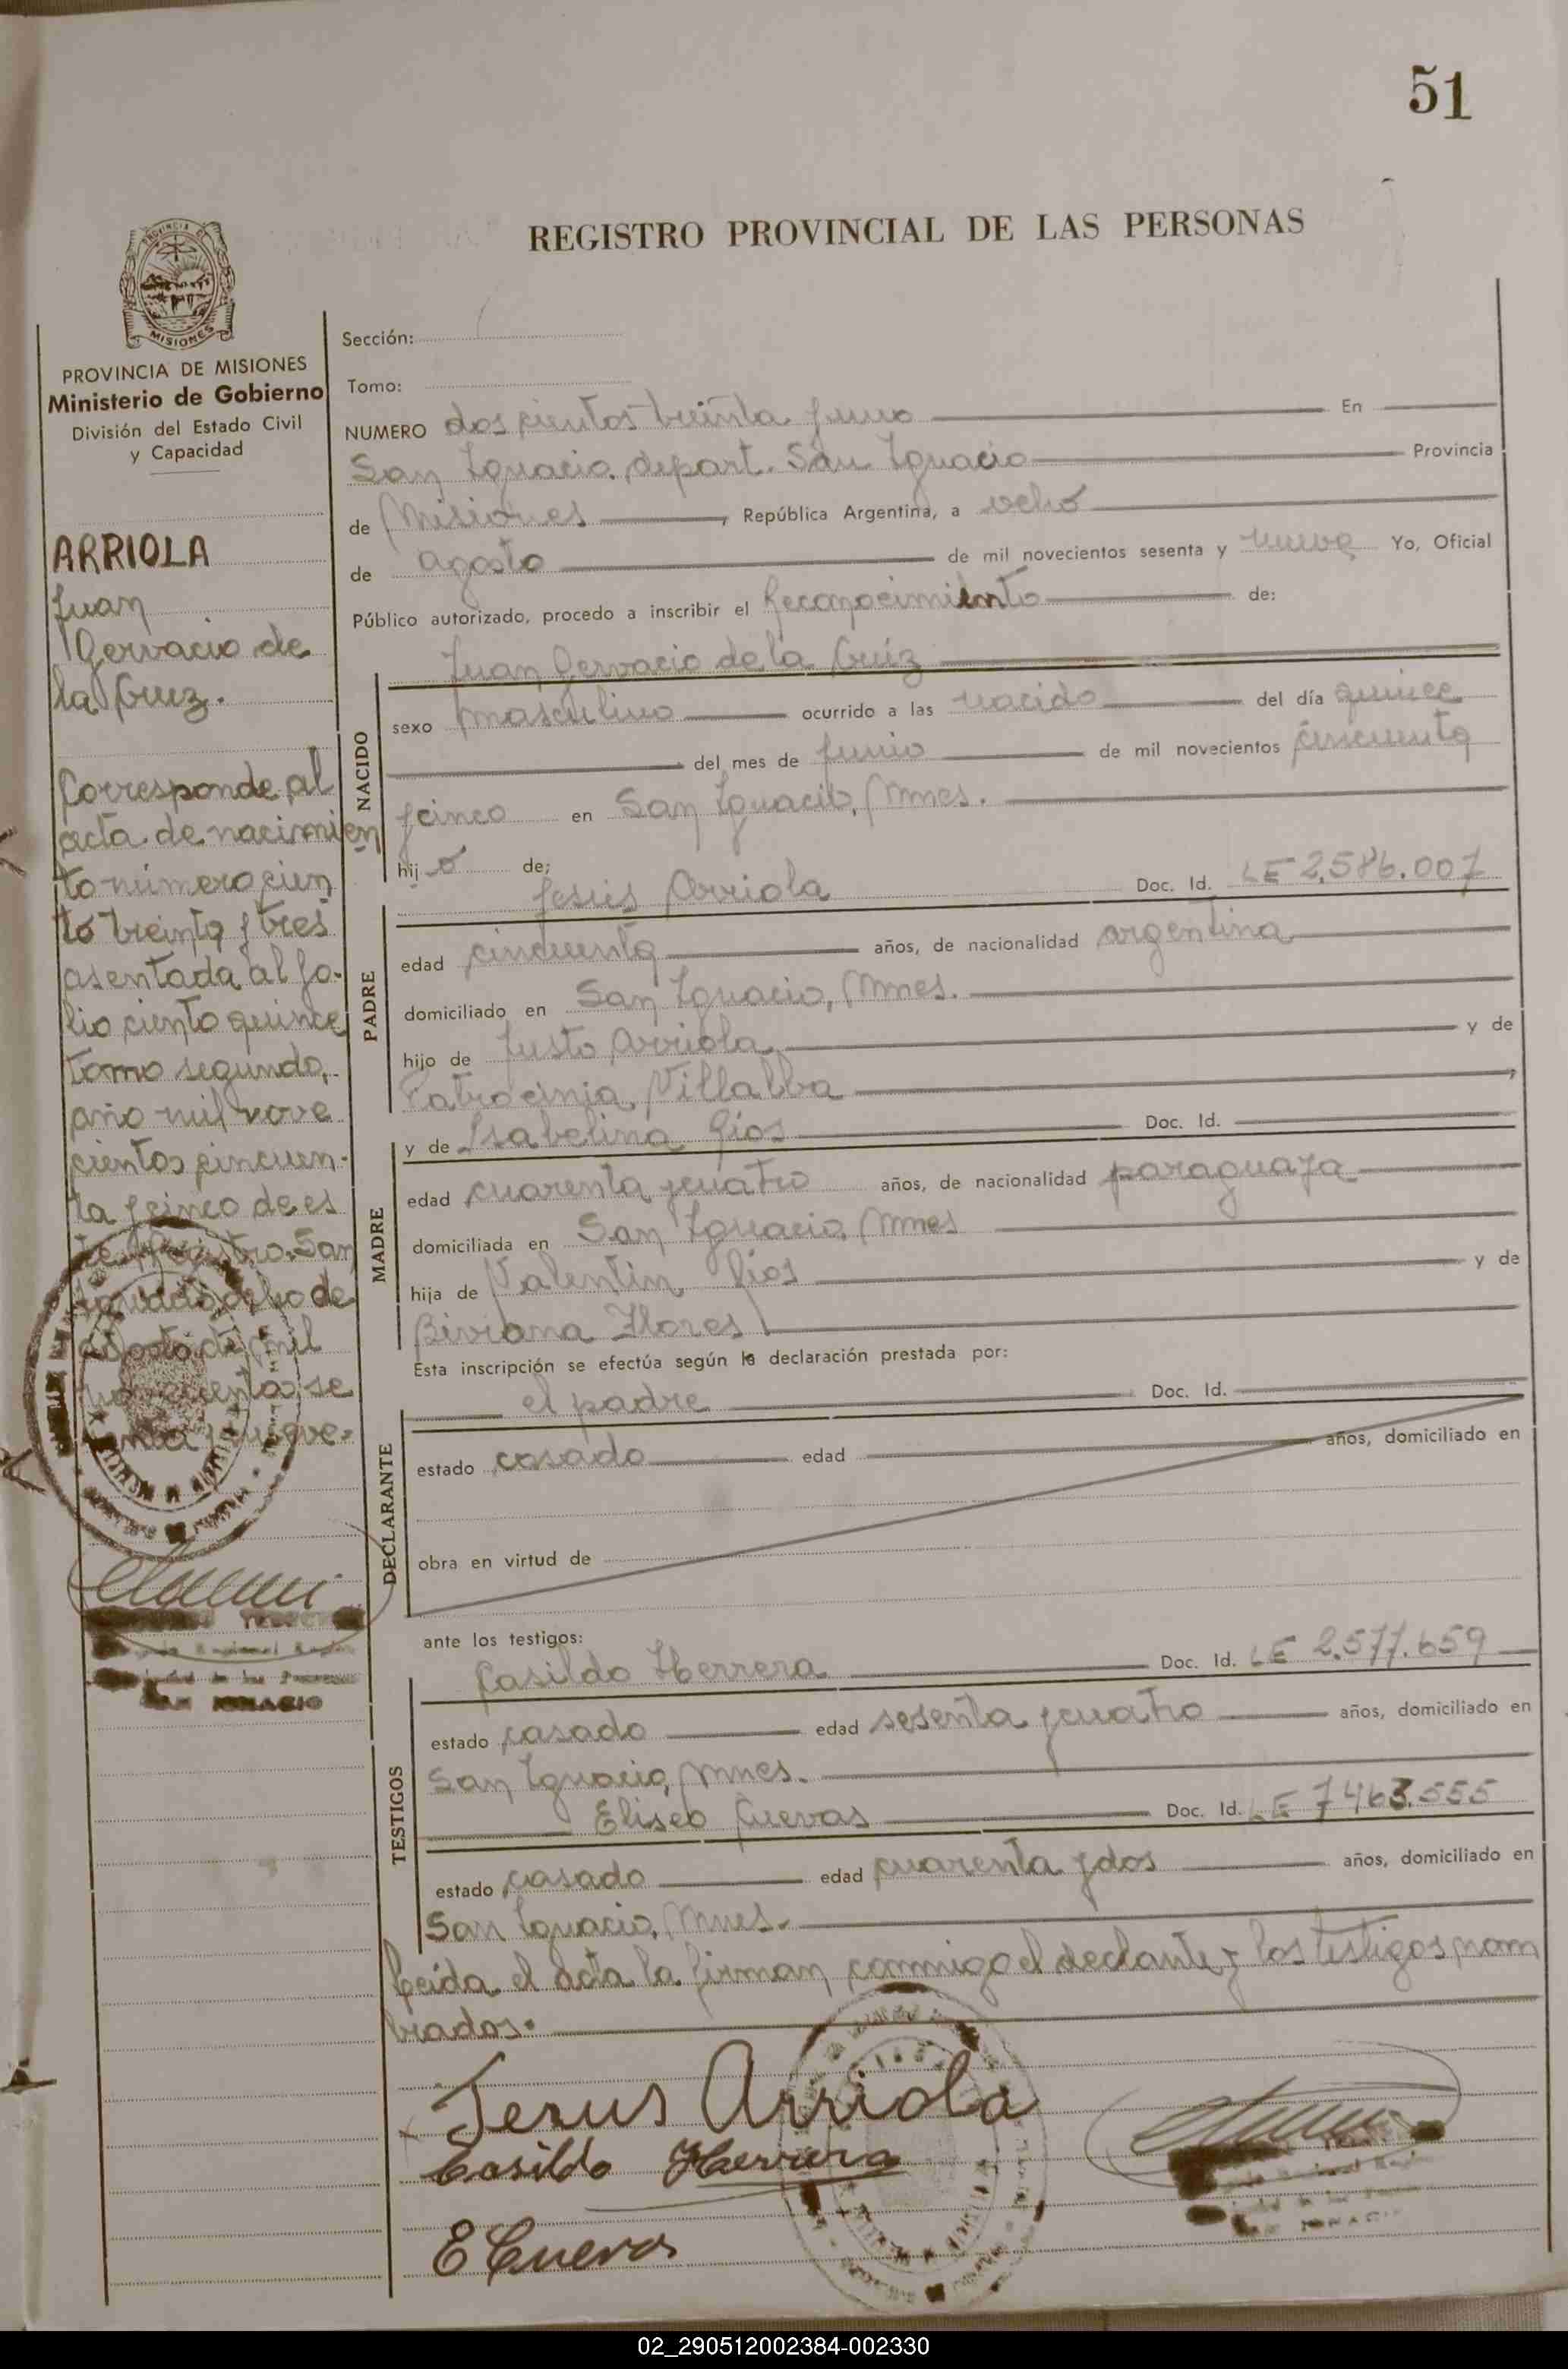 51
REGISTRO PROVINCIAL DE LAS PERSONAS
PROVINCIA DE
MISIONES
PROVINCIA DE MISIONES
Ministerio de Gobierno
División del Estado Civil
y Capacidad
ARRIOLA
Juan
Gervacio de
la Cruz.
Corresponde al
acta de nacimien
to número cien
to treinta y tres
asentada al fo-
lio ciento quince
tomo segundo,
año mil nove
cientos cincuen-
ta y cinco de es
te Registro. San
Ignacio, ocho de
agosto de mil
novecientos se
senta y nueve.
SAN IGNACIO
Sección:
Tomo:
NUMERO doscientos treinta y uno En
San Ignacio, depart. San Ignacio Provincia
de Misiones, República Argentina, a ocho
de agosto de mil novecientos sesenta y nueve Yo, Oficial
Público autorizado, procedo a inscribir el Reconocimiento de:
Juan Gervacio de la Cruz
NACIDO
sexo masculino ocurrido a las nacido del día quince
del mes de Junio de mil novecientos cincuenta
y cinco en San Ignacio, Mnes.
hijo de;
PADRE
Jesús Arriola Doc. Id. LE 2.586.007
edad cincuenta años, de nacionalidad argentina
domiciliado en San Ignacio, Mnes.
hijo de Justo Arriola y de
Patrocinia Villalba
MADRE
y de Isabelina Ríos Doc. Id.
edad cuarenta y cuatro años, de nacionalidad paraguaya
domiciliada en San Ignacio, Mnes
hija de Valentin Ríos y de
Biviana Flores
Esta inscripción se efectúa según la declaración prestada por:
DECLARANTE
el padre Doc. Id.
estado casado edad años, domiciliado en
obra en virtud de
ante los testigos:
TESTIGOS
Casildo Herrera Doc. Id. LE 2.577.659
estado casado edad sesenta y cuatro años, domiciliado en
San Ignacio, Mnes.
Eliseo Cuevas Doc. Id. LE 7463.555
estado casado edad cuarenta y dos años, domiciliado en
San Ignacio, Mnes.
Leída el acta la firman conmigo el declante y los testigos nom
brados.
Jesus Arriola
Casildo Herrera
E Cuevas
02_290512002384-002330